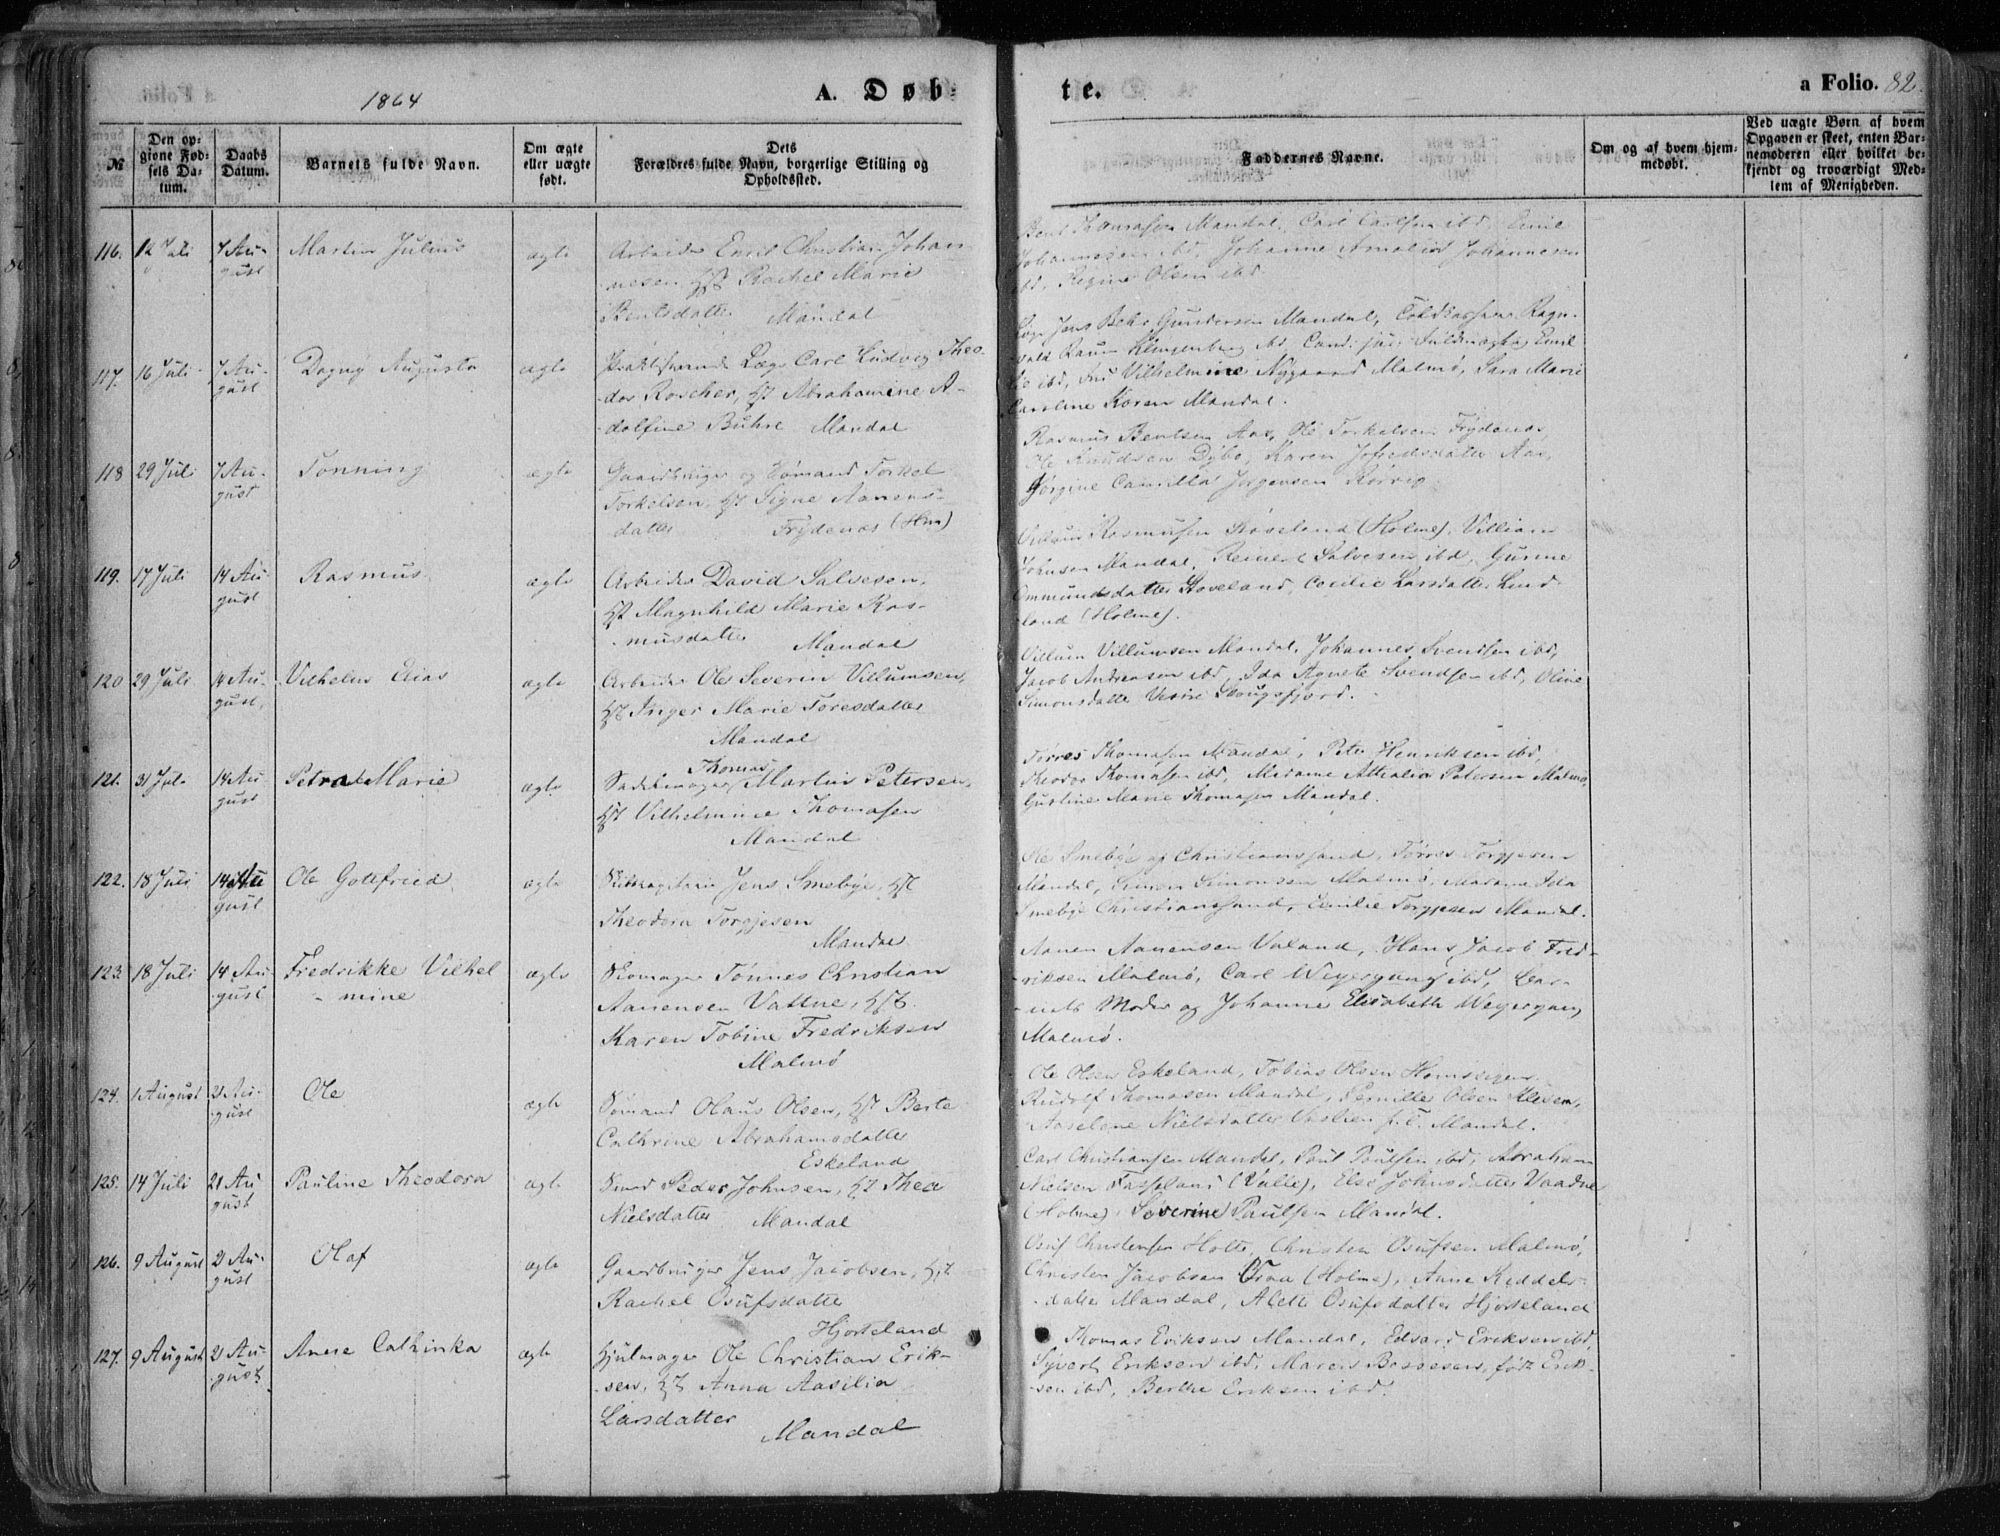 1864
A. Døb-
te.
a Folio. 82.
№
Den op-
givne Fød-
sels Da-
tum.
Daabs
Datum.
Barnets fulde Navn.
Om ægte
eller uægte
født.
Dets
Forældres fulde Navn, borgerlige Stilling og
Opholdssted.
Faddernes Navne.
Om og af hvem hjem-
medøbt.
Ved uægte Børn af hvem
Opgaven er skeet, enten Bar-
nemoderen eller hvilket be-
kjendt og troværdigt Med-
lem af Menigheden.
116. 12 Juli 7 Au-
gust
Martin Julius
ægte
Arbeider Emil Christian Johan-
nesen, Hst Rachel Marie
Bentsdatter Mandal
Mandal, Carl Carlsen ibd, Emil
Johannesen ibd, Johanne Amalie Johannesen
ibd, Regine Olsen ibd
117. 16 Juli 7 Au-
gust
Dagny Augusta
ægte
Praktiserende Læge Carl Ludvig Theo-
dor Roscher, Hst Abrahamine A-
dolfine Buhre Mandal
Læge Jens Behr Gundersen Mandal, Toldkasserer Ragn-
vald Klingenberg ibd, Cand. jur. Fuldmægtig Emil
ibd, Vilhelmine Nygaard Malmø, Sara Marie
Caroline Koren Mandal.
118 29 Juli 7 Au-
gust
Tønning
ægte
Gaardbruger og Sømand Torkel
Torkelsen, Hst Signe Aanens-
datter Frydenæs (Hm)
Rasmus Bentsen Aas, Ole Torkelsen Frydenæs,
Ole Knudsen Dybo, Karen Aas,
Jørgine Camilla Jørgensen Rørvig.
119. 17 Juli 14 Au-
gust
Rasmus
ægte
Arbeider David Salvesen,
Hst Magnhild Marie Ras-
musdatter
Mandal
Rasmusen Støveland (Holme), Villiam
Johnsen Mandal, Reinert Salvesen ibd, Gurine
Ommundsdatter Støveland, Cecilie Larsdatter Lind-
land (Holme).
120 29 Juli 14 Au-
gust,
Vilhelm Elias
ægte
Arbeider Ole Severin Villumsen,
Hst Inger Marie Toresdatter
Mandal
Villum Villumsen Mandal, Johannes Svendsen ibd,
Jacob Andreasen ibd, Ida Agnete Svendsen ibd, Oline
Simonsdatter Vestre Skougsfjord.
121. 31 Juli 14 Au-
gust
Petra Marie
ægte
Thomas
Sadelmager Martin Petersen,
Hst Vilhelmine Thomasen
Mandal
Tørres Thomasen Mandal, Peter Henriksen ibd,
Theodor Thomasen ibd, Madame Attralia Petersen Malmø,
Gustine Marie Thomasen Mandal.
122. 18 Juli 14 Au
gust
Ole Gottfried
ægte
Jens Smebye, Hst
Theodora Torgjesen
Mandal
Ole Smebye af Christianssand, Tørres Torgjesen
Mandal, Simon Simonsen Malmø, Madame Ida
Smebye Christianssand, Emilie Torgjesen Mandal.
123. 18 Juli 14 Au-
gust
Fredrikke Vilhel-
mine
ægte
Skomager Tønnes Christian
Aanensen Vattne, Hst.
Karen Tobine Fredriksen
Malmø
Aanen Aanensen Valand, Hans Jacob Fred-
riksen Malmø, Carl Weyergang ibd, Bar-
nets Moder og Johanne Elisabeth Weyergang
Malmø.
124. 1 August 21 Au-
gust
Ole
ægte
Sømand Olaus Olsen, Hst Berte
Cathrine Abrahamsdatter
Eskeland
Ole Olsen Eskeland, Tobias Olsen
Rudolf Thomasen Mandal, Pernille Olsen
Aaselene Nielsdatter Mandal.
125. 14 Juli 21 Au-
gust
Pauline Theodora
ægte
Smed Peder Johnsen, Hst Thea
Nielsdatter Mandal
Carl Christiansen Mandal, Paul Paulsen ibd, Abraham
Nielsen (Valle), Else Johnsdatter Vaadne
(Holme), Severine Paulsen Mandal.
126. 9 August 21 Au-
gust
Olaf
ægte
Gaardbruger Jens Jacobsen, Hst
Rachel Osufsdatter
Hjorteland
Osuf Christensen Holte, Christen Osufsen Malmø,
Christen Jacobsen (Holme), Anne Keddels-
datter Mandal, Alette Osufsdatter Hjorteland
127. 9 August 21 Au-
gust
Anne Cathinka
ægte
Hjulmager Ole Christian Erik-
sen, Hst Anna Aasilia
Larsdatter
Mandal
Thomas Eriksen Mandal, Edvard Eriksen ibd,
Syvert Eriksen ibd, Maren født Erik-
sen ibd, Berthe Eriksen ibd.